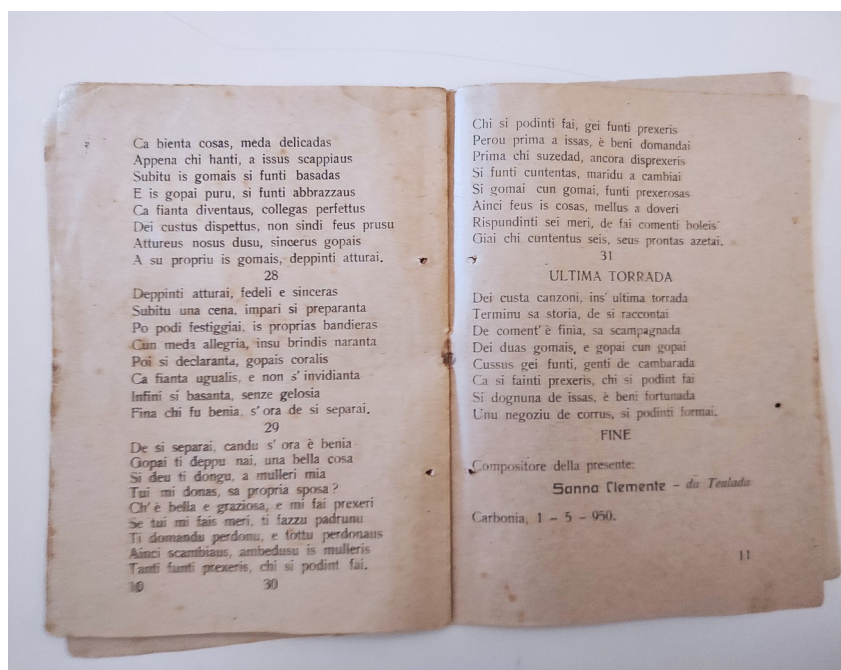 Ca bienta cosas, meda delicadas
Appena chi hanti, a issus scappiaus
Subitu is gomais si funti basadas
E is gopai puru, si funti abbrazzaus
Ca fianta diventaus, collegas perfettus
Dei custus dispettus, non sindi feus prusu
Attureus nosus dusu, sincerus gopais
A su propriu is gomais, deppinti atturai.
28
Deppinti atturai, fedeli e sinceras
Subitu una cena, impari si preparanta
Po podi festiggiai, is proprias bandieras
Cun meda allegria, insu brindis naranta
Poi si declaranta, gopais coralis
Ca fianta ugualis, e non s' invidianta
Infini si basanta, senze gelosia
Fina chi fu benia, s' ora de si separai.
29
De si separai, candu s' ora è benia
Gopai ti deppu nai, una bella cosa
Si deu ti dongu, a mulleri mia
Tui mi donas, sa propria sposa ?
Ch' è bella e graziosa, e mi fai prexeri
Se tui mi fais meri, ti fazzu padrunu
Ti domandu perdonu, e tottu perdonaus
Ainci scambiaus, ambedusu is mulleris
Tanti funti prexeris, chi si podint fai.
10 30
Chi si podinti fai, gei funti prexeris
Perou prima a issas, è beni domandai
Prima chi suzedad, ancora disprexeris
Si funti cuntentas, maridu a cambiai
Si gomai cun gomai, funti prexerosas
Ainci feus is cosas, mellus a doveri
Rispundinti sei meri, de fai comenti boleis
Giai chi cuntentus seis, seus prontas azetai.
31
ULTIMA TORRADA
Dei custa canzoni, ins' ultima torrada
Terminu sa storia, de si raccontai
De coment' è finia, sa scampagnada
Dei duas gomais, e gopai cun gopai
Cussus gei funti, genti de cambarada
Ca si fainti prexeris, chi si podint fai
Si dognuna de issas, è beni fortunada
Unu negoziu de corrus, si podinti formai.
FINE
Compositore della presente:
Sanna Clemente - du Teulada
Carbonia, 1 - 5 - 950.
11